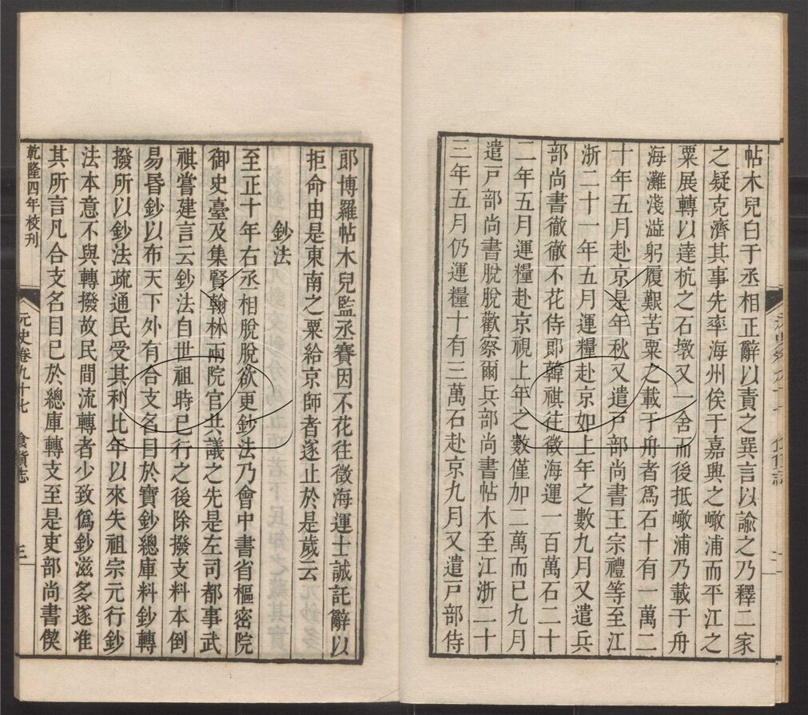 帖木兒白于丞相正辭以責之巽言以諭之乃釋二家
之疑克濟其事先率海州俟于嘉興之噉浦而平江之
粟展轉以達杭之石墩又一舍而後抵噉浦乃載于舟
海灘淺澁躬履艱苦粟之載于舟者爲石十有一萬二
十年五月赴京是年秋又遣戸部尚書王宗禮等至江
浙二十一年五月運糧赴京如上年之數九月又遣兵
部尚書徹徹不花侍郎韓祺往徵海運一百萬石二十
二年五月運糧赴京視上年之數僅加二萬而已九月
遣戸部尚書脫脫歡察爾兵部尚書帖木至江浙二十
三年五月仍運糧十有三萬石赴京九月又遣戸部侍
郎博羅帖木兒監丞賽因不花往徵海運士誠託辭以
拒命由是東南之粟給京師者遂止於是歲云
鈔法
至正十年右丞相脫脫欲更鈔法乃會中書省樞密院
御史臺及集賢翰林兩院官共議之先是左司都事武
祺嘗建言云鈔法自世祖時已行之後除撥支料本倒
易昬鈔以布天下外有合支名目於寶鈔總庫料鈔轉
撥所以鈔法疏通民受其利比年以來失祖宗元行鈔
法本意不與轉撥故民間流轉者少致僞鈔滋多遂准
其所言凡合支名目已於總庫轉支至是吏部尚書偰
乾隆四年校刊
元史卷九十七 食貨志 三